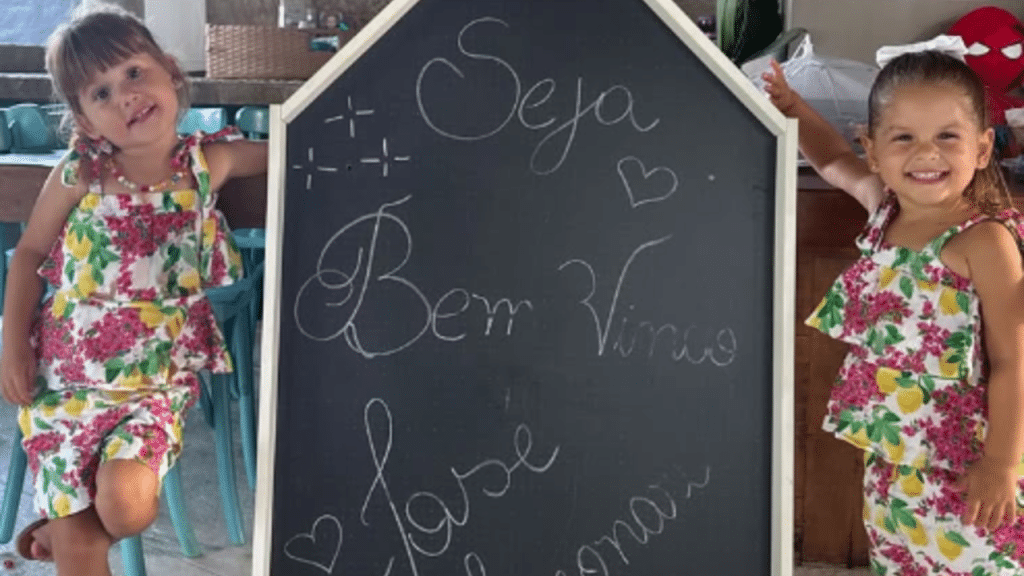 Seja
Bem Vinco
Jose